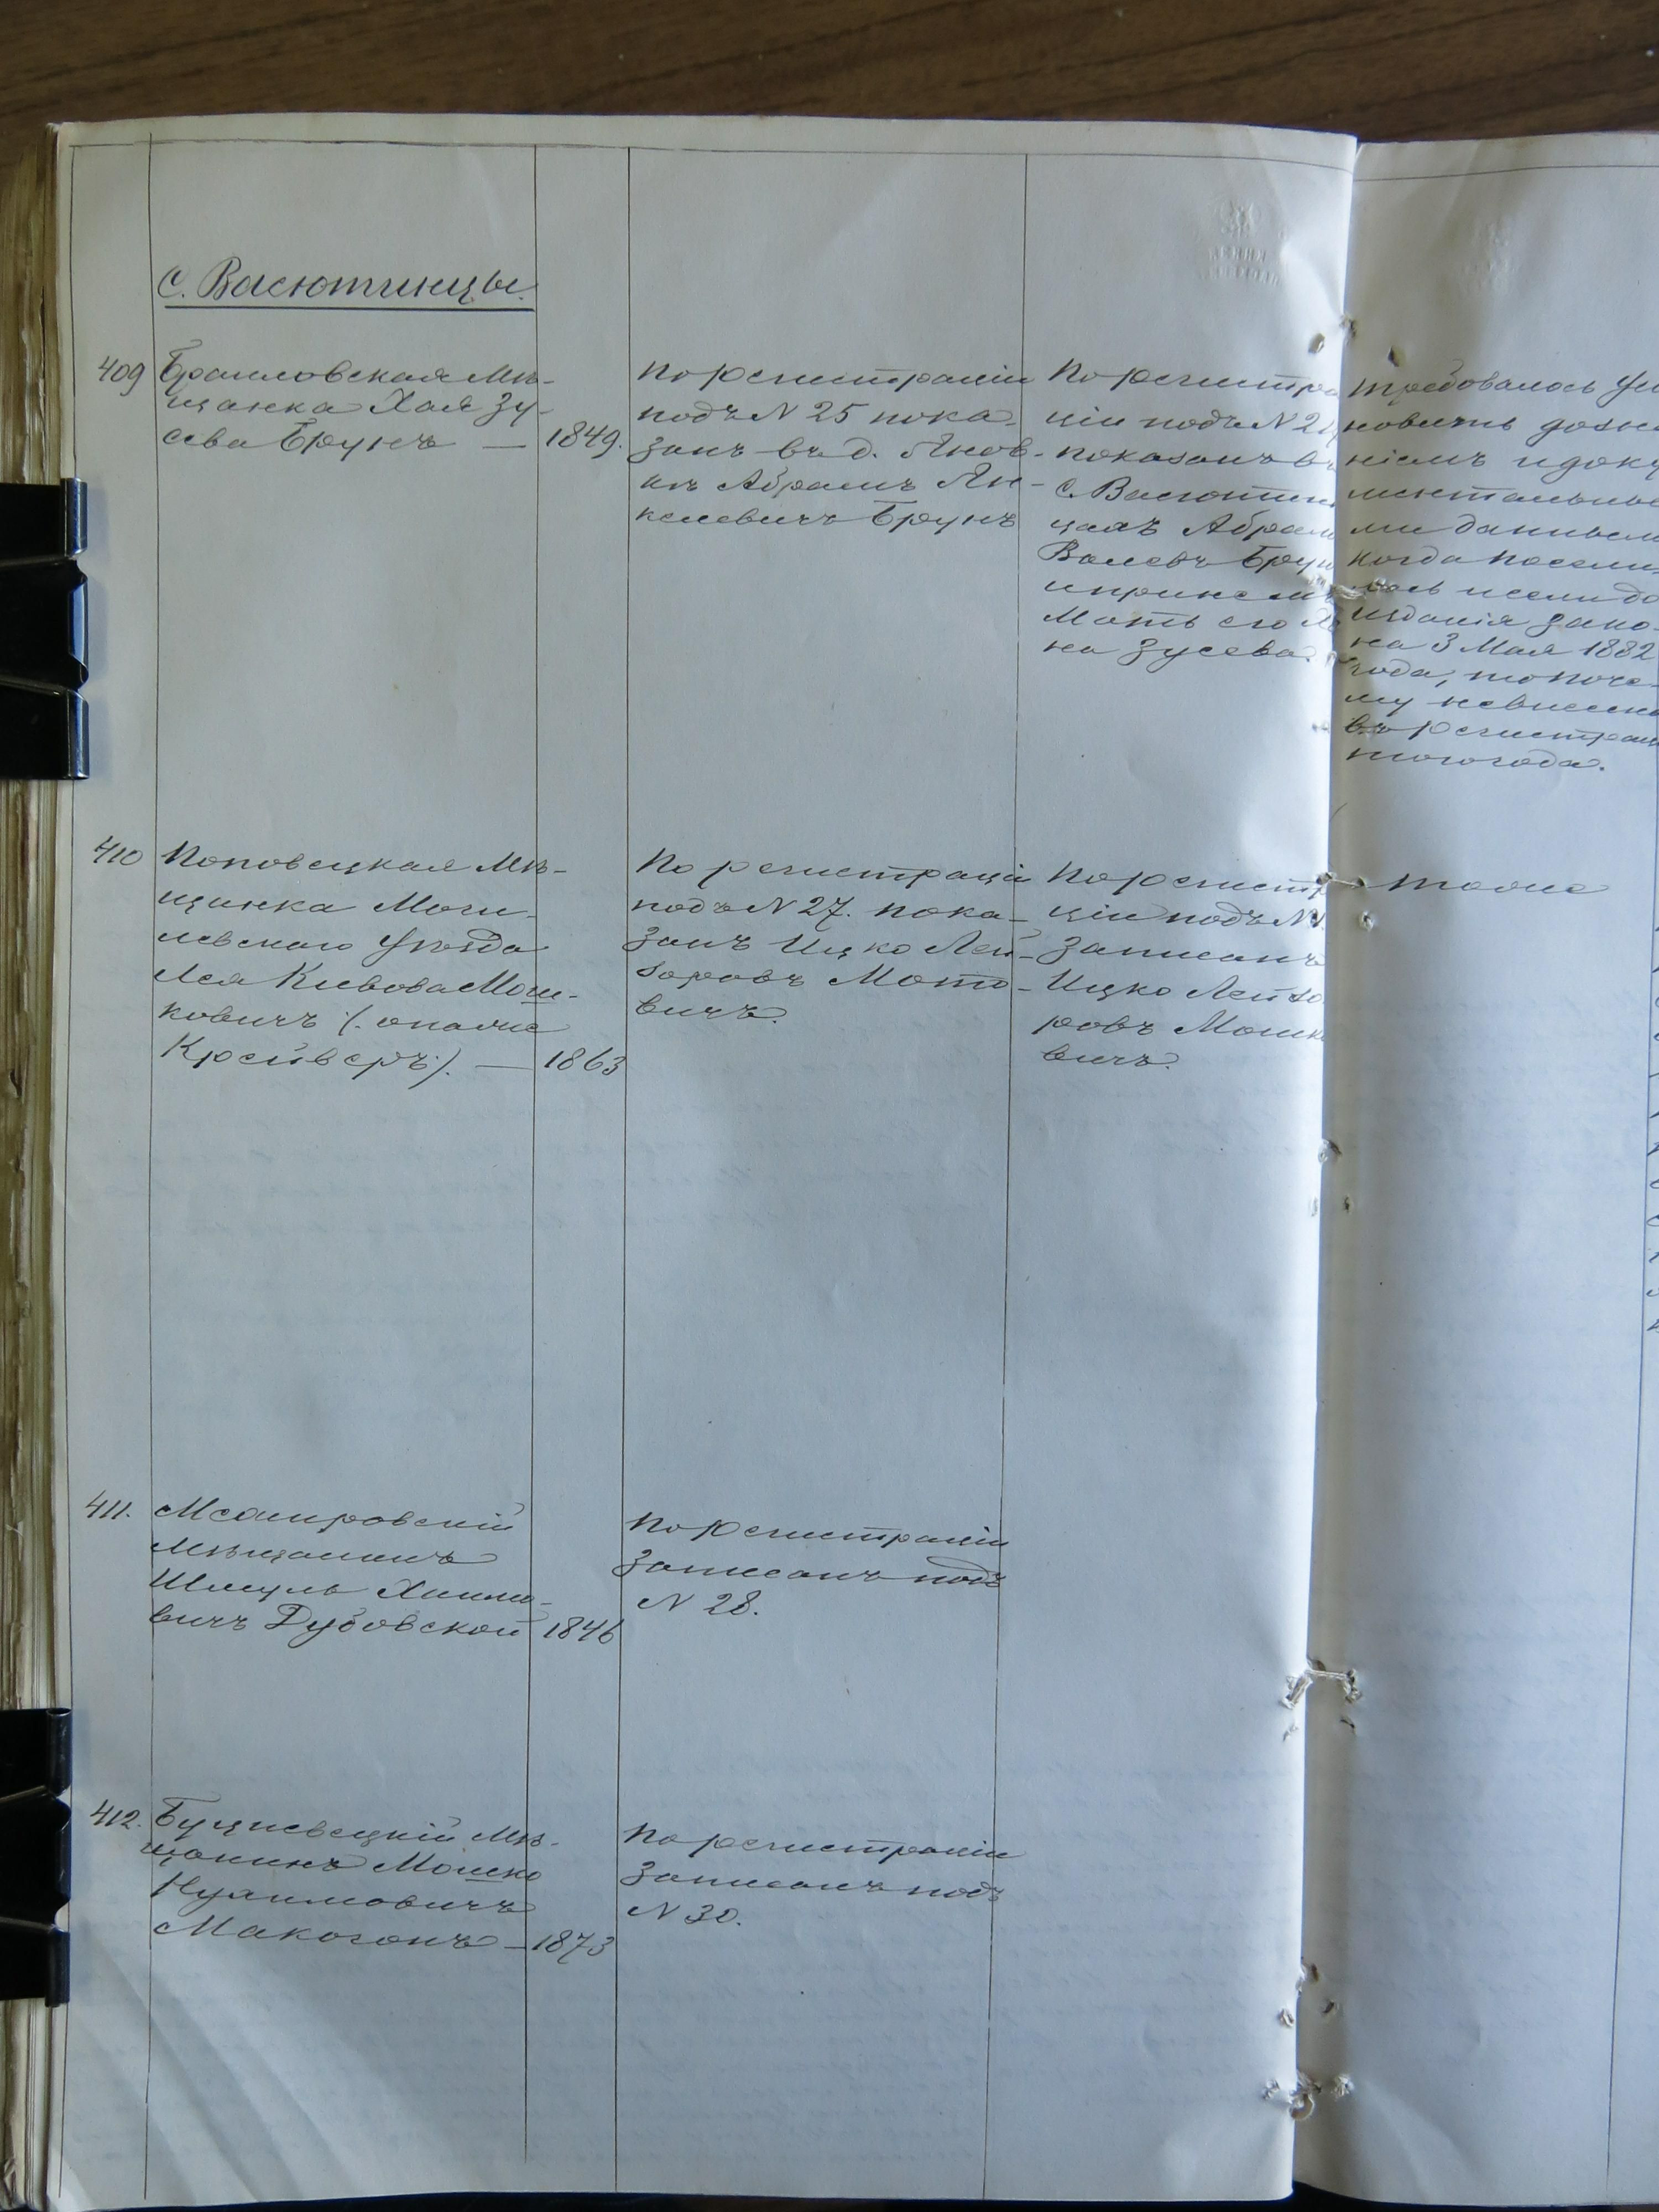 с. Васютинцы.
409
Браиловская Мѣ-
щанка Хая Зу-
сева Брунъ — 1849.
По регистраціи
подъ N 25 пока-
занъ въ д. Янов-
кѣ Абрамъ Ян-
келевичъ Брунъ
По регистра
ціи подъ N 2
показанъ въ
с. Васютин
цахъ Абрам
Брун
и при нем
Мать его
на Зусева.
требовалось
новить дозна
ніемъ и доку
ментальны
ми данным
когда посели-
лась если до
изданія зако-
на 3 Мая 1882
года, то поче-
му не внесена
въ регистрац
того года.
410
Поповецкая Мѣ-
щанка Моги-
левскаго Уѣзда
Лея Кивова Мош-
ковичъ (. она же
Крейверъ). — 1863
По регистраціи
подъ N 27. пока-
занъ Ицко Лей-
зоровъ Мото-
вичъ.
По регистр
ціи подъ N
записанъ
Ицко Лейзо
ровъ Мошко
вичъ.
тоже
411.
Мѣщанинъ
Шмуль Хаимо-
вичъ Дубовской 1846
По регистраціи
записанъ подъ
N 28.
412.
Буцневецкій Мѣ-
щанинъ Мошко
Нухимовичъ
Макогонъ — 1873
По регистраціи
записанъ подъ
N 30.